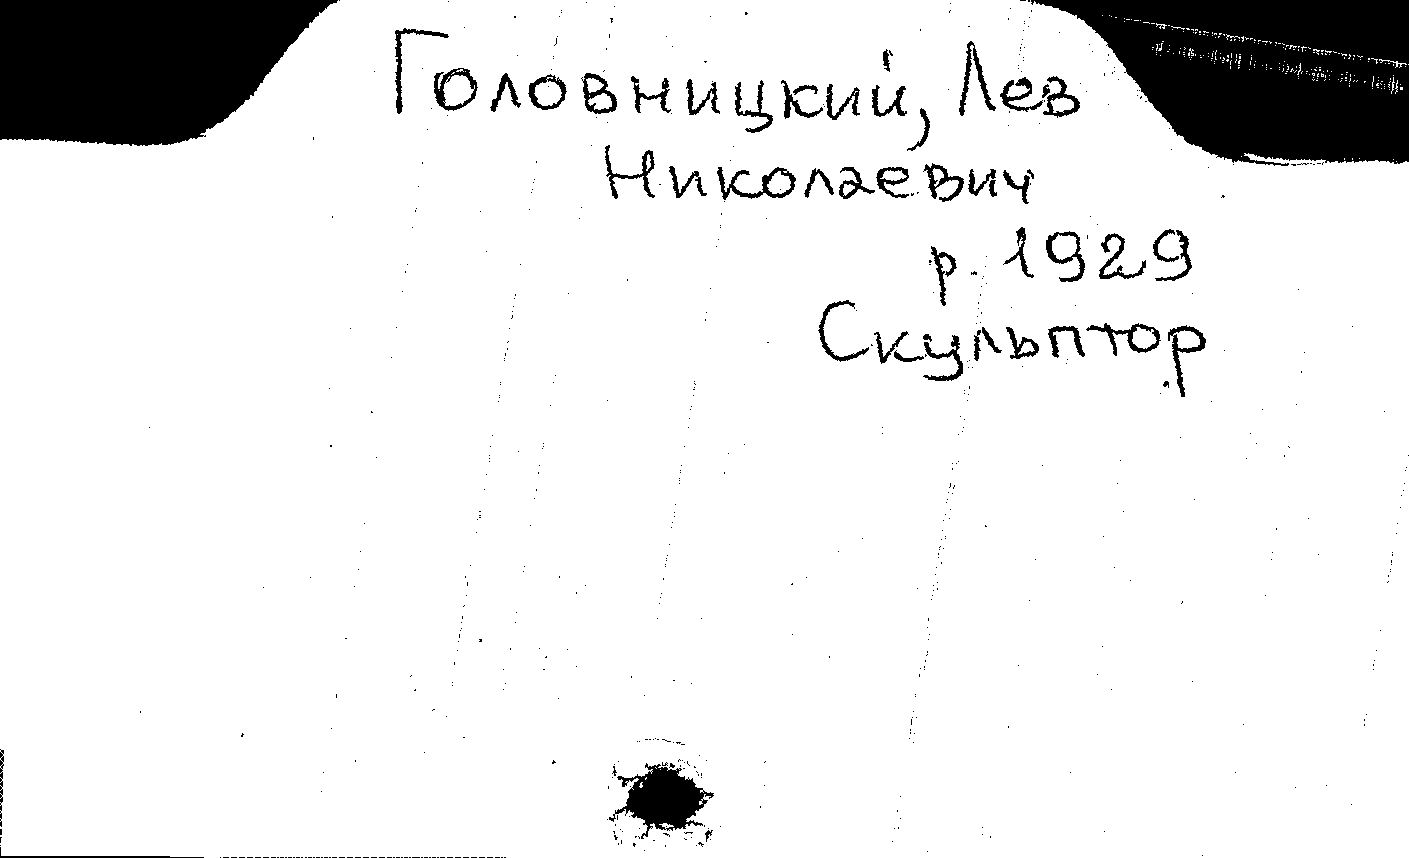 Головницкий, Лев
Николаевич
р. 1929
Скульптор